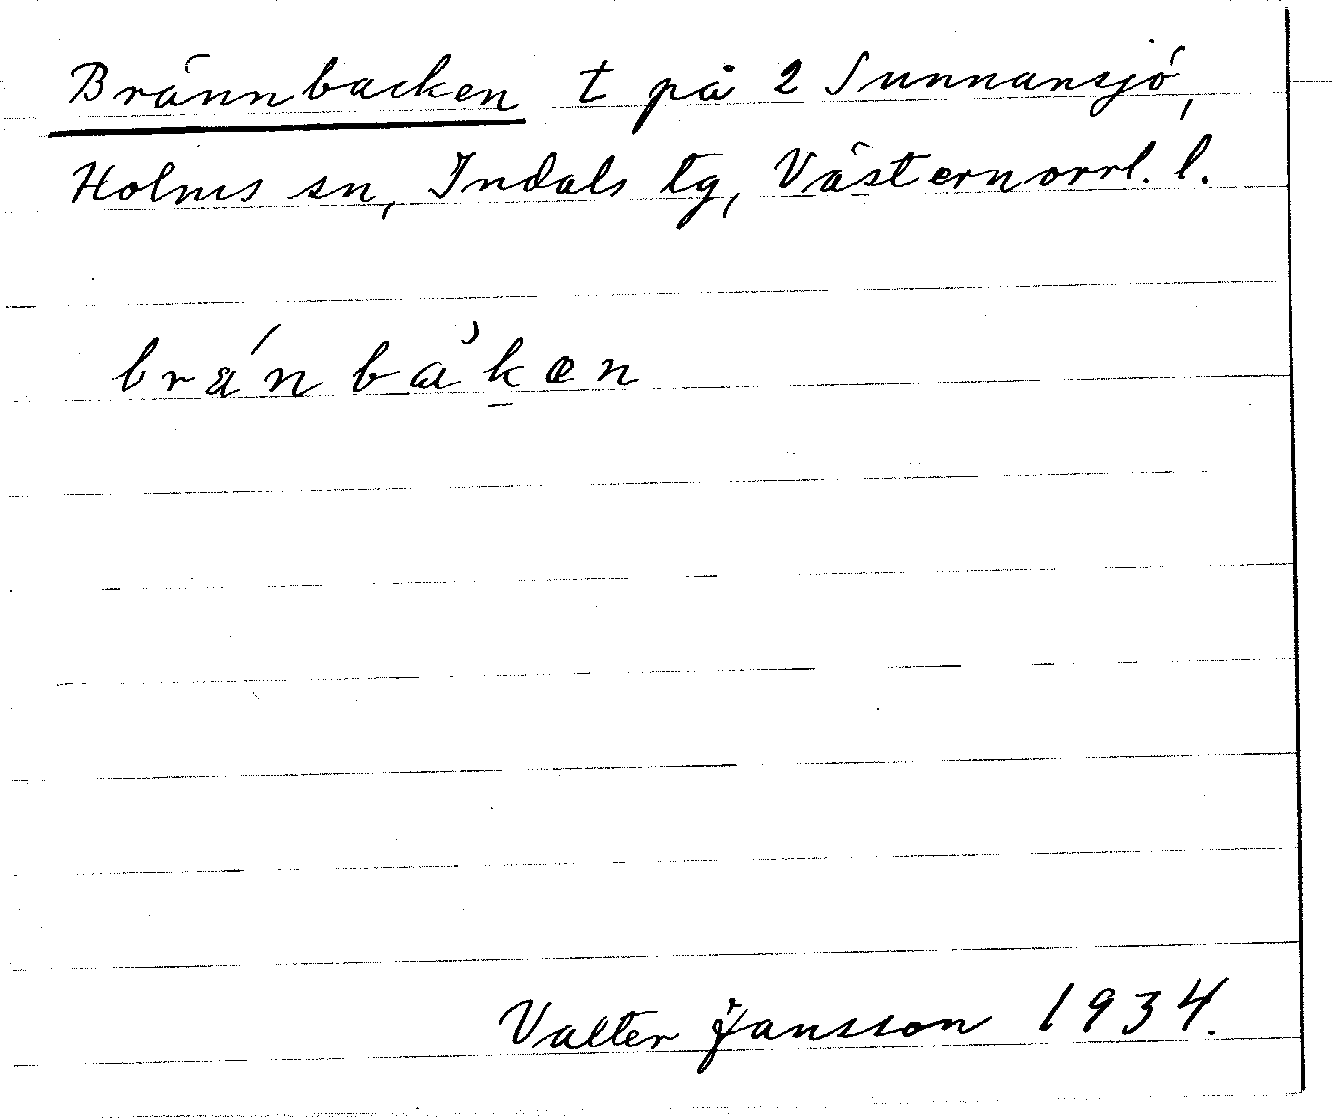 Brännbacken t på 2 Sunnansjö,
Holms sn, Indals tg, Västernorrl. l.
brä́nbàken
Valter Jansson 1934.